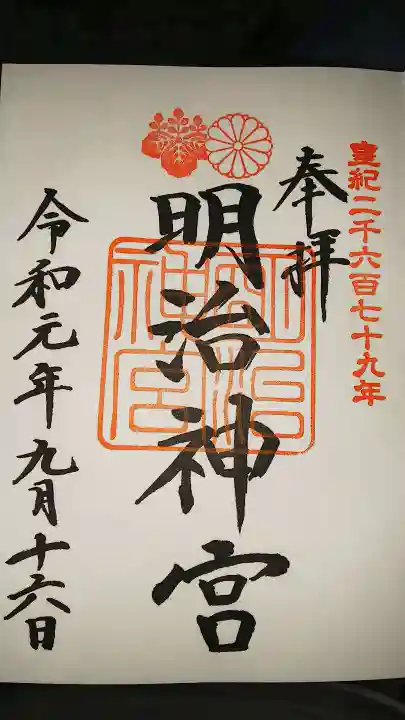 皇紀二千六百七十九年
奉拝
明治神宮
明治神宮
令和元年九月十六日